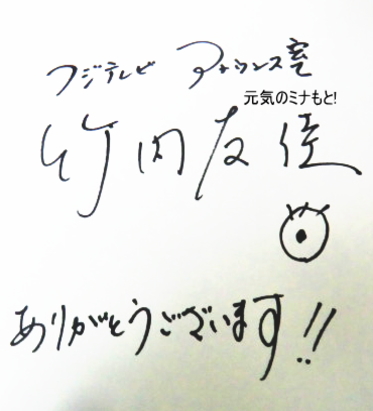 フジテレビ アナウンス室
元気のミナもと!
竹内友佳
ありがとうございます!!